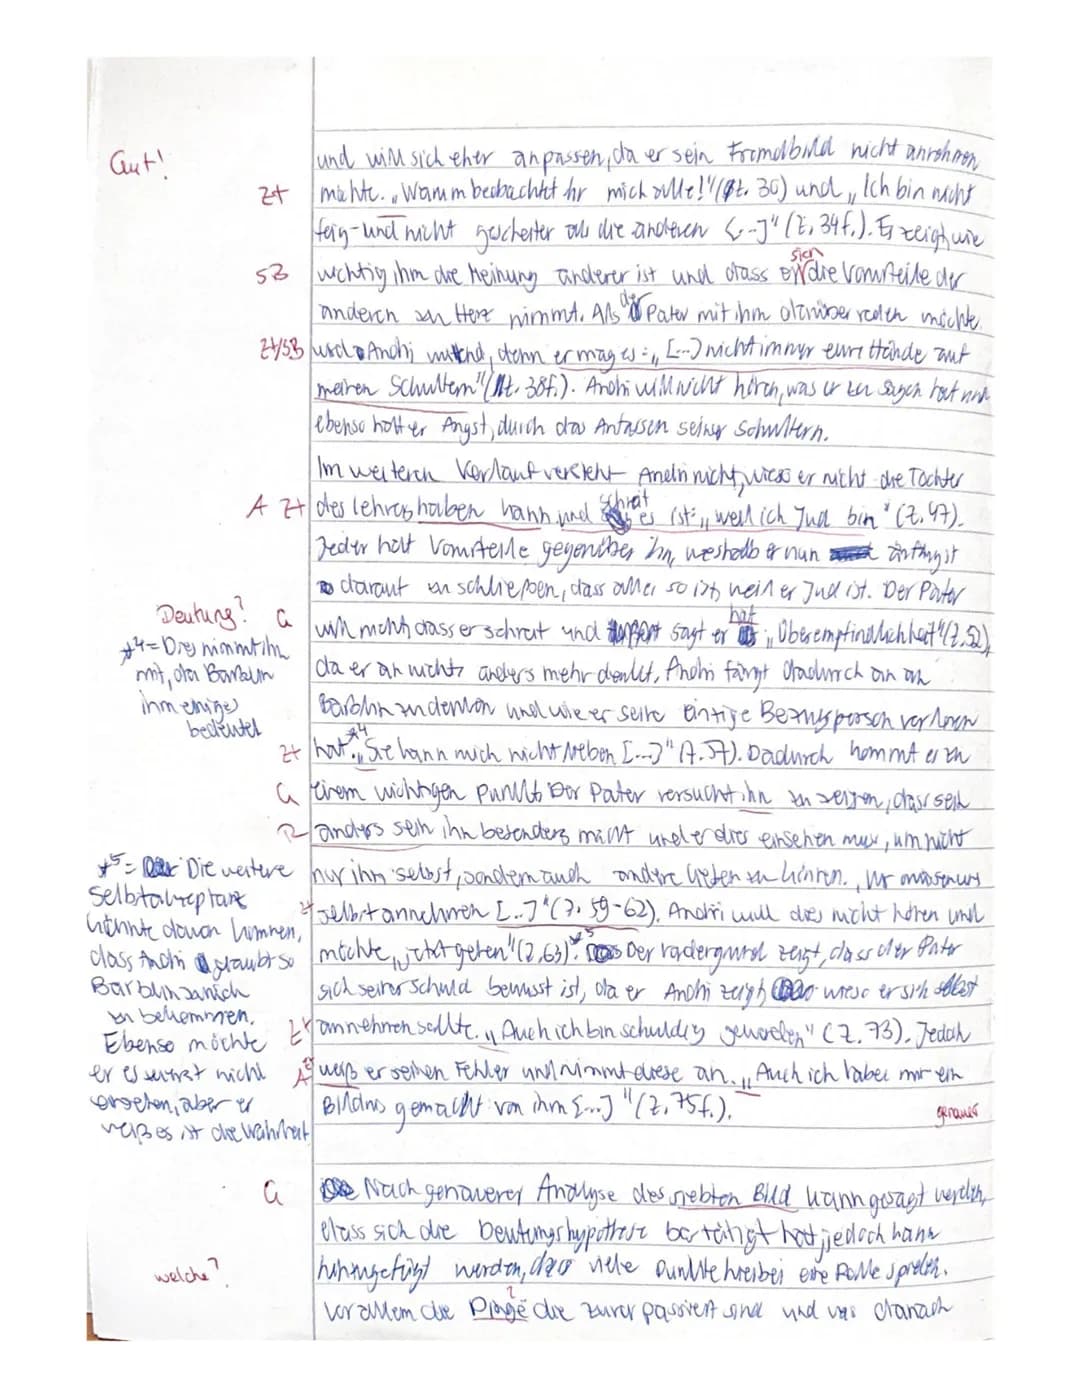 Gut!
und will sich eher anpassen, da er sein Fremdbild nicht annehmen
Zt
möchte. „Warum beobachtet ihr mich alle!" (Z. 30) und „Ich bin nicht
feig und nicht gescheiter als die anderen [...]" (Z. 34f.). Es zeigt, wie
SB
wichtig ihm die Meinung anderer ist und dass er sich die Vorurteile der
anderen zu Herz nimmt. Als der Pater mit ihm darüber reden möchte,
Zt/SB
wird Andri wütend, denn er mag es: „[...] nicht immer eure Hände auf
meinen Schultern" (Z. 38f.). Andri will nicht hören, was er zu sagen hat und
ebenso hat er Angst, durch das Anfassen seiner Schultern.
Im weiteren Verlauf versteht Andri nicht, wieso er nicht die Tochter
A Zt
des Lehrers haben kann und schreit es ist: „weil ich Jud bin" (Z. 47).
Jeder hat Vorurteile gegenüber ihn, weshalb er nun anfängt
darauf zu schließen, dass alles so ist, weil er Jud ist. Der Pater
Deutung? G
will nicht, dass er schreit und sagt er hat „Überempfindlichkeit" (Z. 52),
*4 = Dies nimmt ihn
mit, da Barblin
ihm einiges
bedeutet
da er an nichts anders mehr denkt. Andri fängt dadurch an an
Barblin zu denken und wie er seine einzige Bezugsperson verloren
Zt
hat.*4 „Sie kann mich nicht lieben [...]" (Z. 57). Dadurch kommt er zu
G
einem wichtigen Punkt. Der Pater versucht ihn zu zeigen, dass sein
R
anders sein ihn besonders macht und er dies einsehen muss, um nicht
nur ihm selbst, sondern auch andere lieben zu können. „Wir müssen uns
Zt
selbst annehmen [...]" (Z. 59-62). Andri will dies nicht hören und
möchte „jetzt gehen" (Z. 63).*5 Der vordergrund zeigt, dass der Pater
*5 = Die weitere
Selbstakzeptanz
könnte davon kommen,
dass Andri glaubt so
Barblin zu
bekommen.
Ebenso möchte
er es nicht
einsehen, aber er
weiß es ist die Wahrheit
sich seiner schuld bewusst ist, da er Andri zeigt, wieso er sich selbst
Zt
annehmen sollte. „Auch ich bin schuldig geworden" (Z. 73). Jedoch
A Zt
weiß er seinen Fehler und nimmt diese an. „Auch ich habe mir ein
Bildnis gemacht von ihm [...]" (Z. 75f.).
genauer
G
Nach genauerer Analyse des siebten Bild kann gesagt werden,
dass sich die Deutungshypothese bestätigt hat, jedoch kann
welche?
hinzugefügt werden, dass viele Punkte hierbei eine Rolle spielen.
?
Vor allem die Dinge die zuvor passiert sind und was danach